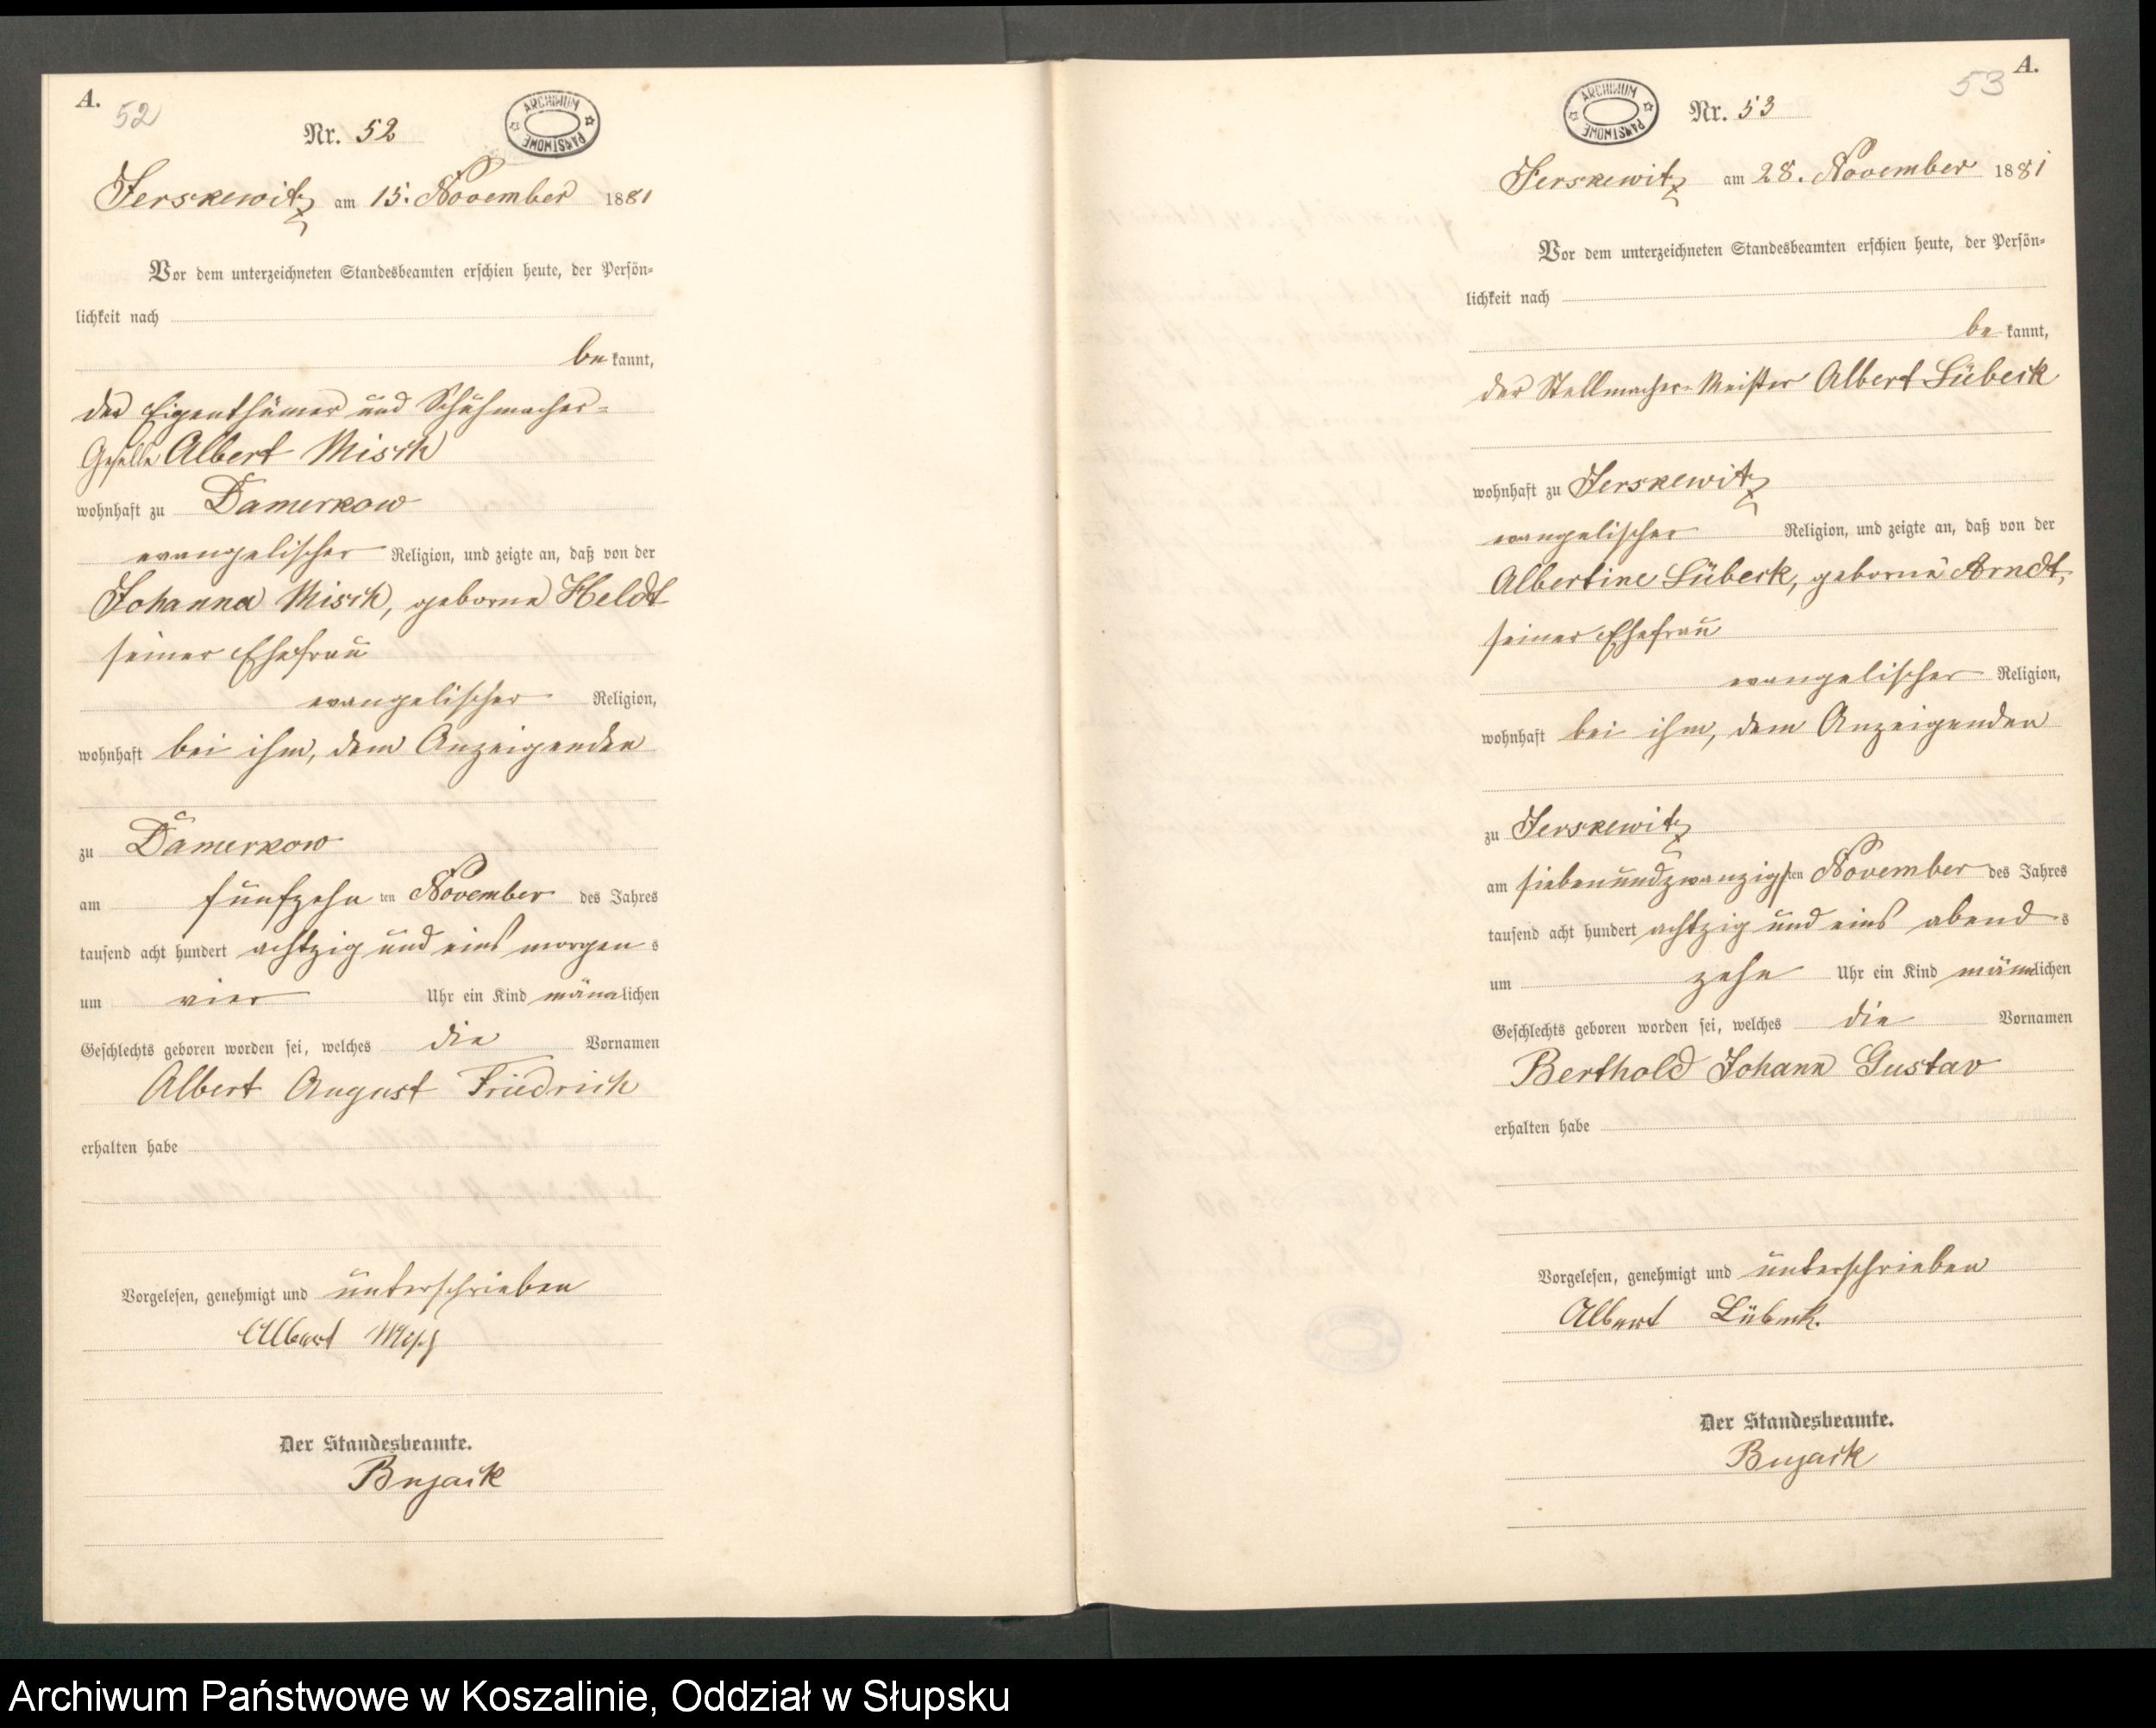 A.
52
Nr. 52
ARCHIWUM PAŃSTWOWE
Jerskewitz am 15. November 1881
Vor dem unterzeichneten Standesbeamten erschien heute, der Persön-
lichkeit nach
be kannt,
der Eigenthümer und Schuhmacher-
Geselle Albert Misch
wohnhaft zu Damerkow
evangelischer Religion, und zeigte an, daß von der
Johanna Misch, geborne Heldt
seiner Ehefrau
evangelischer Religion,
wohnhaft bei ihm, dem Anzeigenden
zu Damerkow
am fünfzehn ten November des Jahres
tausend acht hundert achtzig und eins morgen s
um vier Uhr ein Kind männlichen
Geschlechts geboren worden sei, welches die Vornamen
Albert August Friedrich
erhalten habe
Vorgelesen, genehmigt und unterschrieben
Albert Misch
Der Standesbeamte.
Bujack
53
A.
ARCHIWUM PAŃSTWOWE
Nr. 53
Jerskewitz am 28. November 1881
Vor dem unterzeichneten Standesbeamten erschien heute, der Persön-
lichkeit nach
be kannt,
der Stellmacher-Meister Albert Lübeck
wohnhaft zu Jerskewitz
evangelischer Religion, und zeigte an, daß von der
Albertine Lübeck, geborne Arndt,
seiner Ehefrau
evangelischer Religion,
wohnhaft bei ihm, dem Anzeigenden
zu Jerskewitz
am siebenundzwanzigsten November des Jahres
tausend acht hundert achtzig und eins abend s
um zehn Uhr ein Kind männlichen
Geschlechts geboren worden sei, welches die Vornamen
Berthold Johann Gustav
erhalten habe
Vorgelesen, genehmigt und unterschrieben
Albert Lübeck.
Der Standesbeamte.
Bujack
Archiwum Państwowe w Koszalinie, Oddział w Słupsku